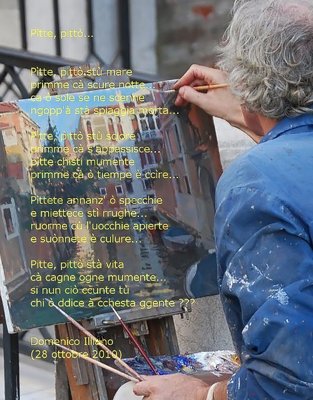 Pitte, pittò...
Pitte, pittò stù mare
primme cà scure notte...
cà ò sole se ne scenne
ngopp'à stà spiaggia morta...
Pitte, pittò stù sciore
primme cà s'appassisce...
pitte chisti mumente
primme cà ò tiempe è ccire...
Pittete annanz' ò specchie
e miettece stì rrughe...
ruorme cù l'uocchie apierte
e suonnete è culure...
Pitte, pittò stà vita
cà cagne ogne mumente...
si nun ciò ccunte tù
chi ò ddice à cchesta ggente ???
Domenico Illiano
(28 ottobre 2019)